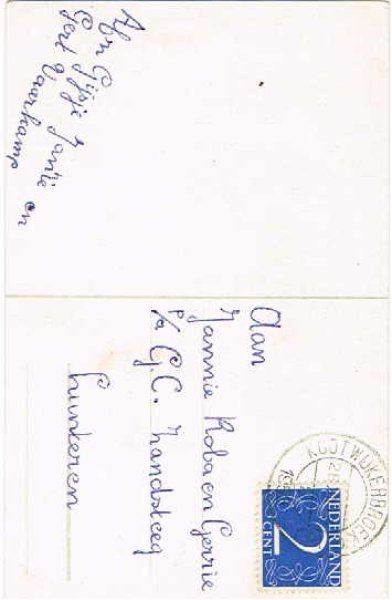 Afz
Gijsje Jantje en
Gert Vaarkamp
Aan
Jannie Roba en Gerrie
p/a G.C. Zandsteeg
Lunteren
KOOTWIJKERBROEK
NEDERLAND
2
CENT